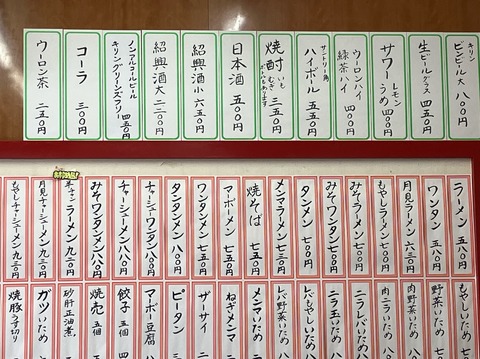 キリン
ビンビール大 八〇〇円
生ビールグラス 四五〇円
サワー レモン うめ 四〇〇円
ウーロンハイ
緑茶ハイ 四〇〇円
サントリー角
ハイボール 五五〇円
焼酎 いも むぎ 三五〇円
日本酒 五〇〇円
紹興酒小 六五〇円
紹興酒大 二二〇〇円
ノンアルコールビール
キリングリーンズフリー 四五〇円
コーラ 三〇〇円
ウーロン茶 二五〇円
ラーメン 五八〇円
ワンタン 五八〇円
月見ラーメン 六三〇円
もやしラーメン 七〇〇円
みそラーメン 七〇〇円
みそワンタン 七〇〇円
タンメン 七〇〇円
メンマラーメン 七五〇円
焼そば 七五〇円
マーボーメン 七五〇円
ワンタンメン 七五〇円
タンタンメン 八〇〇円
チャーシューワンタン 八八〇円
チャーシューメン 八八〇円
みそワンタンメン 八八〇円
ラーメン 九〇〇円
月見チャーシューメン 九三〇円
もやしチャーシューメン 九三〇円
もやしいため
野菜いため
肉野菜いため
肉ニラいため
ニラレバいため
ニラ玉いため
レバもやしいため
レバ野菜いため
メンマいため
ねぎメンマ
ザーサイ
ピータン
マーボー豆腐
餃子 五個
焼売 五個
砂肝正油煮
ガツいため
焼豚うす切り